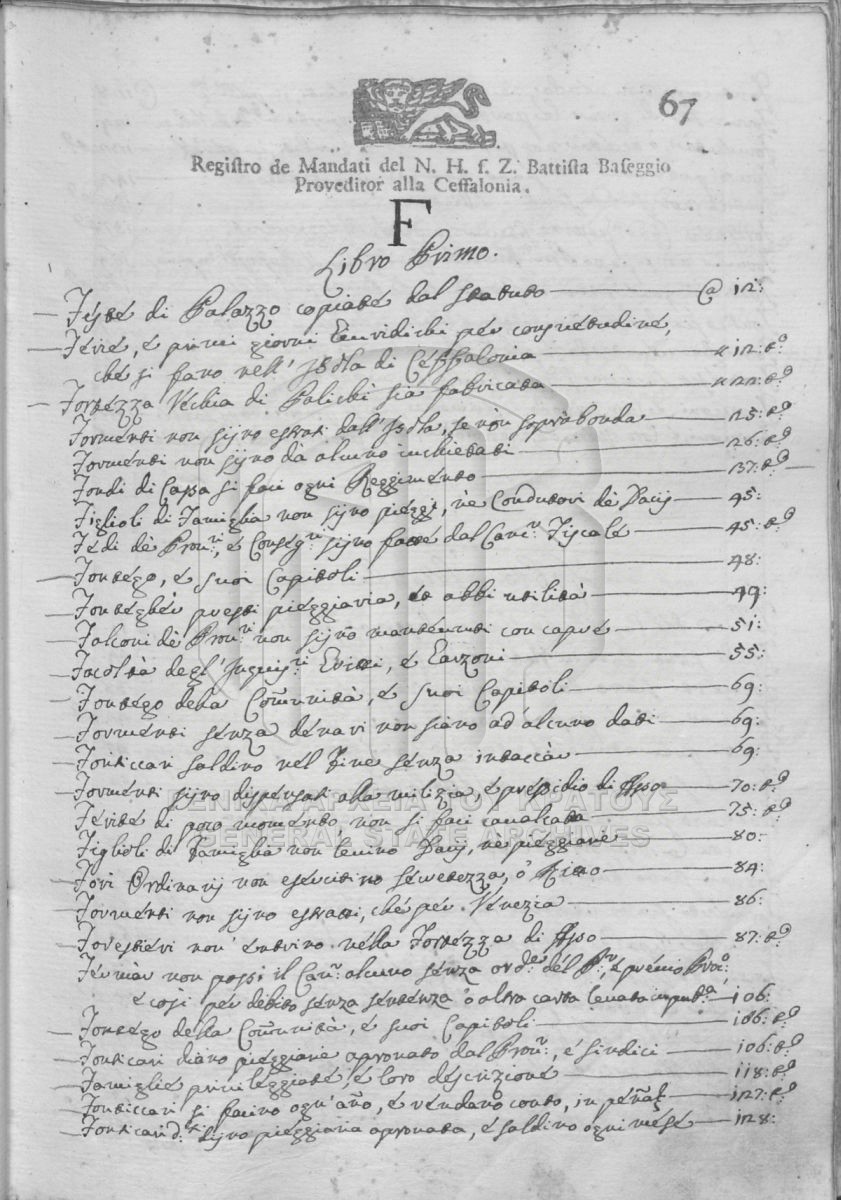 67
Registro de Mandati del N. H. s. Z. Battista Baseggio
Proveditor alla Ceffalonia.
F
Libro Primo.
Feste di Palazzo copiate dal statuto @ 12:
Ferie, e primi giorni Giuridichi per consuetudine,
che si fano nell' Isola di Ceffalonia « 12: tº
Fortezza Vechia di Palichi sia fabricata « 22: tº
Formenti non sijno estrati dall' Isola, se non soprabonda 25: tº
Formenti non sijno dà alcuno inchietati 26: tº
Fondi di Cassa si faci ogni Reggimento 37: tº
Figlioli di Famiglia non sijno pieggi, nè Condutori dè Dacij 45:
Fedi dè Prov.ri, e Conseg.ri sijno fatte dal Canc.r Fiscale 45: tº
Fontego, e suoi Capitoli 48:
Fontegher presti pieggiaria, et abbi utilità 49:
Falconi dè Prov.ri non sijno mantenuti con capre 51:
Facoltà degl' Inquis.ri Erizzi, e Garzoni 55:
Fontego della Comunità, e suoi Capitoli 69:
Formenti senza denari non siano ad' alcuno dati 69:
Fonticcari saldino nel Fine senza intaccar 69:
Formenti sijno dispensati alla milizia, e presidio di Asso 70: tº
Ferite di poco momento, non si faci cavalcata 75: tº
Figlioli di Famiglia non levino Dacij, nè pieggiarie 80:
Fori Ordinarij non esercitino secretezza, ò Rito 84:
Formenti non sijno estratti, che per Venezia 86:
Forestieri non entrino nella Fortezza di Asso 87: tº
Fermar non possi il Canc.r alcuno senza ord.e del
e così per debito senza sentenza ò altra carta levata 106:
Fontego della Comunità, e suoi Capitoli 106: tº
Fonticari diano pieggiarie aprovate dal Prov.r, e sindici 106: tº
Famiglie privileggiate, e loro descrizione 118: tº
Fonticcari si facino ogn' año, e rendano conto, in 127: tº
Fonticari d.ti dijno pieggiaria aprovata, e saldino ogni mese 128:
ΓΕΝΙΚΑ ΑΡΧΕΙΑ ΤΟΥ ΚΡΑΤΟΥΣ
GENERAL STATE ARCHIVES